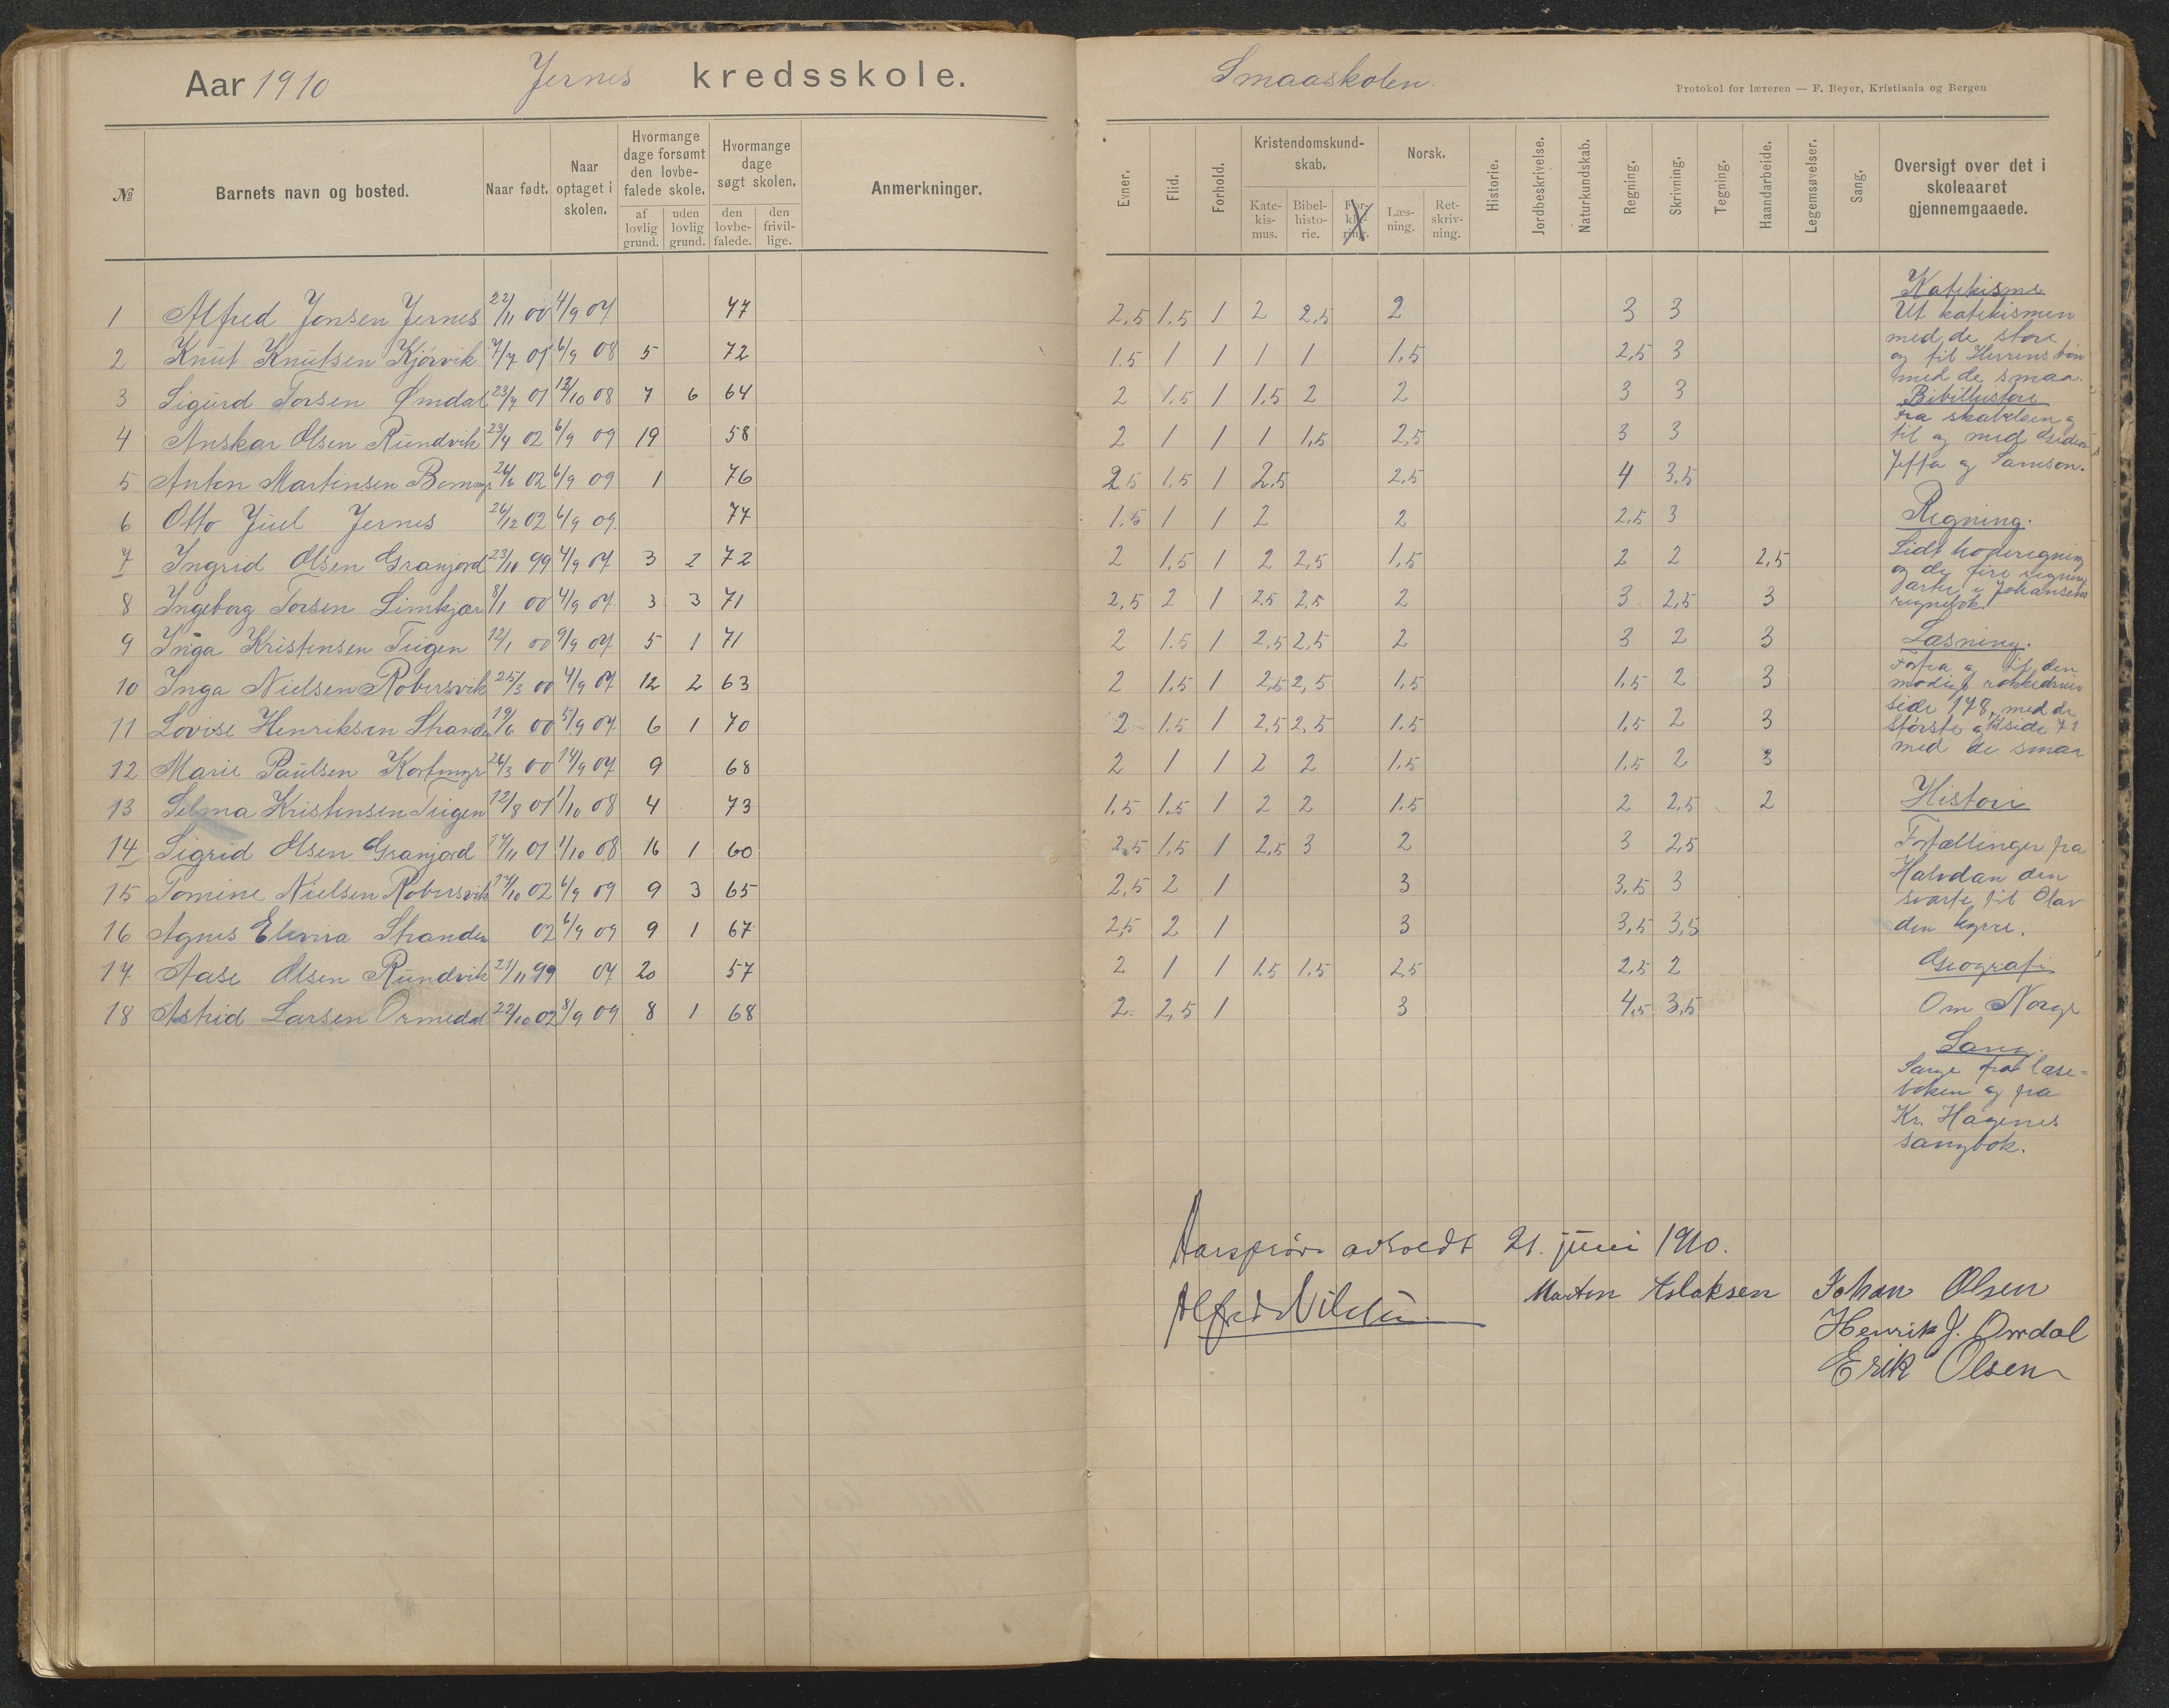 Aar 1910 Jernes kredsskole. Smaaskolen.
Protokol for læreren — F. Beyer, Kristiania og Bergen
№ Barnets navn og bosted. Naar født. Naar optaget i skolen. Hvormange dage forsømt den lovbefalede skole. af lovlig grund. uden lovlig grund. Hvormange dage søgt skolen. den lovbefalede. den frivillige. Anmerkninger. Evner. Flid. Forhold. Kristendomskundskab. Katekismus. Bibelhistorie. Forklaring. Norsk. Læsning. Retskrivning. Historie. Jordbeskrivelse. Naturkundskab. Regning. Skrivning. Tegning. Haandarbeide. Legemsøvelser. Sang. Oversigt over det i skoleaaret gjennemgaaede.
1 Alfred Jonsen Jernes 22/11 00 4/9 07 77 2,5 1.5 1 2 2,5 2 3 3
2 Knut Knutsen Kjørvik 7/7 01 6/9 08 5 72 1.5 1 1 1 1 1,5 2,5 3
3 Sigurd Torsen Ømdal 23/7 01 12/10 08 7 6 64 2 1.5 1 1.5 2 2 3 3
4 Anskar Olsen Rundvik 23/4 02 6/9 09 19 58 2 1 1 1 1,5 2,5 3 3
5 Anton Martinsen 26/6 02 6/9 09 1 76 2,5 1.5 1 2,5 2,5 4 3,5
6 Otto Juel Jernes 26/12 02 6/9 09 77 1,5 1 1 2 2 2,5 3
7 Ingrid Olsen Granjord 23/10 99 4/9 07 3 2 72 2 1,5 1 2 2,5 1,5 2 2 2,5
8 Ingeborg Torsen Limkjær 8/1 00 4/9 07 3 3 71 2,5 2 1 2,5 2,5 2 3 2,5 3
9 Inga Kristensen Teigen 12/1 00 9/9 07 5 1 71 2 1.5 1 2,5 2,5 2 3 2 3
10 Inga Nielsen Robersvik 25/3 00 4/9 07 12 2 63 2 1,5 1 2,5 2,5 1,5 1,5 2 3
11 Lovise Henriksen Strande 19/6 00 5/9 07 6 1 70 2 1,5 1 2,5 2,5 1,5 1,5 2 3
12 Marie Paulsen Kortmyr 26/3 00 14/9 07 9 68 2 1 1 2 2 1.5 1.5 2 3
13 Selma Kristensen Teigen 12/8 01 1/10 08 4 73 1.5 1.5 1 2 2 1.5 2 2,5 2
14 Sigrid Olsen Granjord 14/11 01 1/10 08 16 1 60 2,5 1,5 1 2,5 3 2 3 2,5
15 Tomine Nielsen Robersvik 14/10 02 6/9 09 9 3 65 2,5 2 1 3 3,5 3
16 Agnes Strande 02 6/9 09 9 1 67 2,5 2 1 3 3,5 3,5
17 Aase Olsen Rundvik 21/11 99 07 20 57 2 1 1 1.5 1.5 2,5 2,5 2
18 Astrid Larsen Ormedal 22/10 02 8/9 09 8 1 68 2. 2,5 1 3 4,5 3,5
Katekisme
Ut katekismen
med de store
og til Herrens bøn
med de smaa.
Bibelhistorie
Fra skabelsen
til og med Gideon
Jefta og Samson.
Regning.
Lidt hoderegning
og de fire regnings
arter i Johansens
regnebok.
Læsning.
Forfra og til den
modige
side 178, med de
største og til side 71
med de smaa
Historie
Fortællinger fra
Halvdan den
svarte til Olav
den kyrre.
Geografi
Om Norge
Sang.
Sange fra læse=
boken og fra
Kr. Hagenes
sangbok.
Aarsprøve avholdt 21. juni 1910.
Morten Aslaksen Johan Olsen
Henrik J. Omdal
Erik Olsen